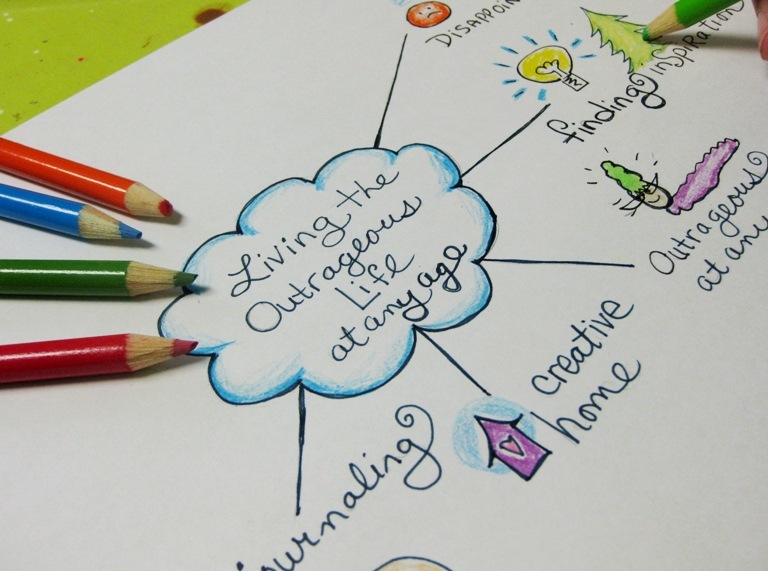 Living the
Outrageous
Life
at any age
finding
inspiration
Outrageous
at any
creative
home